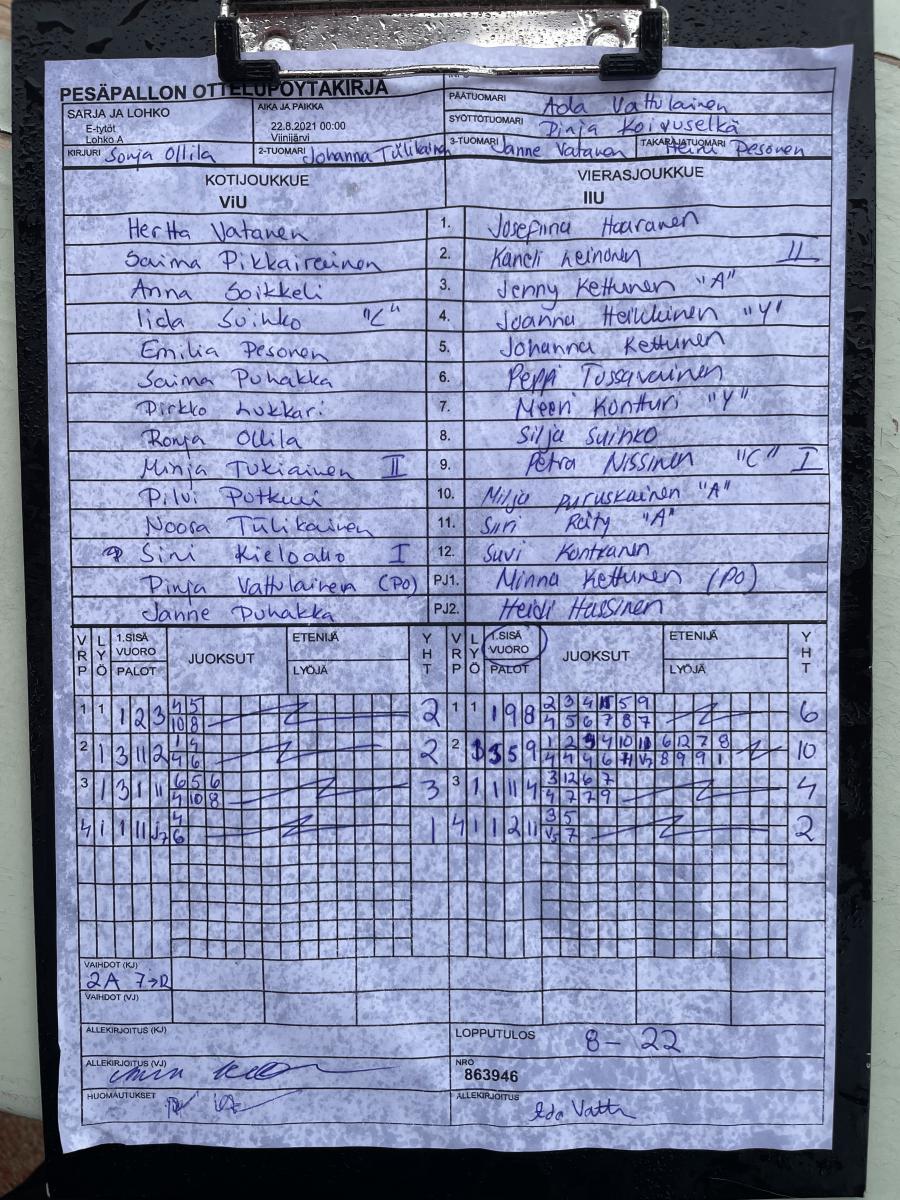 PESÄPALLON OTTELUPÖYTÄKIRJA
SARJA JA LOHKO
E-tytöt
Lohko A
AIKA JA PAIKKA
22.8.2021 00:00
Viinijärvi
PÄÄTUOMARI Ada Vattulainen
SYÖTTÖTUOMARI Pinja Koivuselkä
KIRJURI Sonja Ollila 2-TUOMARI Johanna Tülikainen 3-TUOMARI Janne Vatanen TAKARAJATUOMARI Heini Pesonen
KOTIJOUKKUE VIERASJOUKKUE
ViU IIU
Hertta Vatanen 1. Josefiina Haaranen
Saima Pikkairainen 2. Kaneli Leinonen II
Anna Soikkeli 3. Jenny Kettunen "A"
Iida Suihko "C" 4. Joanna Heikkinen "Y"
Emilia Pesonen 5. Johanna Kettunen
Saima Puhakka 6. Peppi Tossavainen
Pirkko Lukkari 7. Meeri Kontturi "Y"
Ronja Ollila 8. Silja Suihko
Minja Tukiainen II 9. Petra Nissinen "C" I
Pilvi Potkuri 10. Milja Puruskainen "A"
Noora Tülikainen 11. Siiri Reity "A"
Sini Kieloaho I 12. Suvi Kontkanen
Pinja Vattulainen (PO) PJ1. Minna Kettunen (PO)
Janne Puhakka PJ2. Heidi Hassinen
VRP LYÖ 1.SISÄ VUORO PALOT JUOKSUT ETENIJÄ LYÖJÄ YHT VRP LYÖ 1.SISÄ VUORO PALOT JUOKSUT ETENIJÄ LYÖJÄ YHT
1 1 1 2 3 4 5 2 1 1 1 9 8 2 3 4 5 9 6
10 8 4 5 6 7 8 7
2 1 3 11 2 1 4 2 2 3 5 9 1 2 4 10 11 6 12 7 8 10
4 6 4 4 4 6 8 9 9 1
3 1 3 1 11 6 5 6 3 3 1 1 11 4 3 12 6 7 4
4 10 8 4 7 7 9
4 1 1 11 4 1 4 1 1 2 11 3 5 2
6 7
VAIHDOT (KJ)
2A 7→12
VAIHDOT (VJ)
ALLEKIRJOITUS (KJ) LOPPUTULOS 8 - 22
ALLEKIRJOITUS (VJ) NRO
863946
HUOMAUTUKSET ALLEKIRJOITUS
Ada Vatt